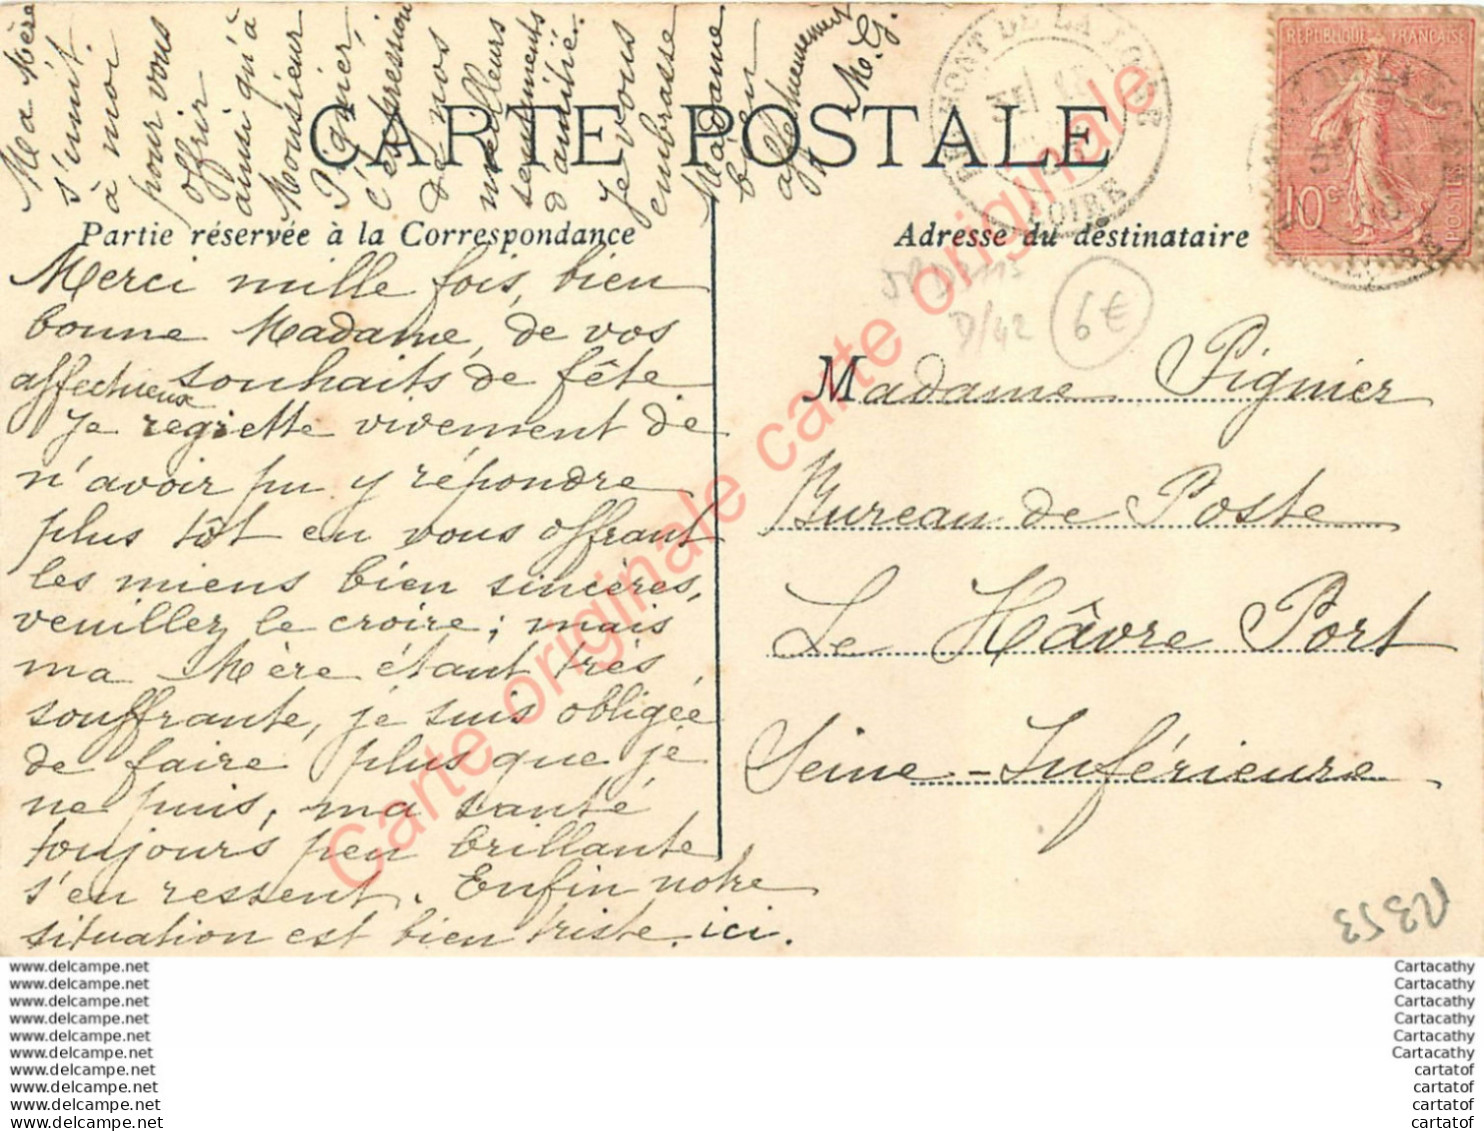 Ma Mère
s'unit
à moi
pour vous
offrir
ainsi qu'à
Monsieur
Pignier,
l'expression
de nos
meilleurs
sentiments
d'amitié.
Je vous
embrasse
Madame
bien
affectueusement
M. G.
CARTE POSTALE
Partie réservée à la Correspondance
Adresse du destinataire
REPUBLIQUE FRANÇAISE
10 c
POSTES
LOIRE
Merci mille fois, bien
bonne Madame, de vos
affectueux souhaits de fête
Je regrette vivement de
n'avoir pu y répondre
plus tôt en vous offrant
les miens bien sincères,
veuillez le croire; mais
ma Mère étant très
souffrante, je suis obligée
de faire plus que je
ne puis, ma santé
toujours peu brillante
s'en ressent. Enfin notre
situation est bien triste ici.
D/42
6€
Madame Pignier
Bureau de Poste
Le Hâvre Port
Seine-Inférieure
12353
Carte originale carte originale
www.delcampe.net
www.delcampe.net
www.delcampe.net
www.delcampe.net
www.delcampe.net
www.delcampe.net
www.delcampe.net
www.delcampe.net
www.delcampe.net
www.delcampe.net
Cartacathy
Cartacathy
Cartacathy
Cartacathy
Cartacathy
Cartacathy
cartatof
cartatof
cartatof
cartatof